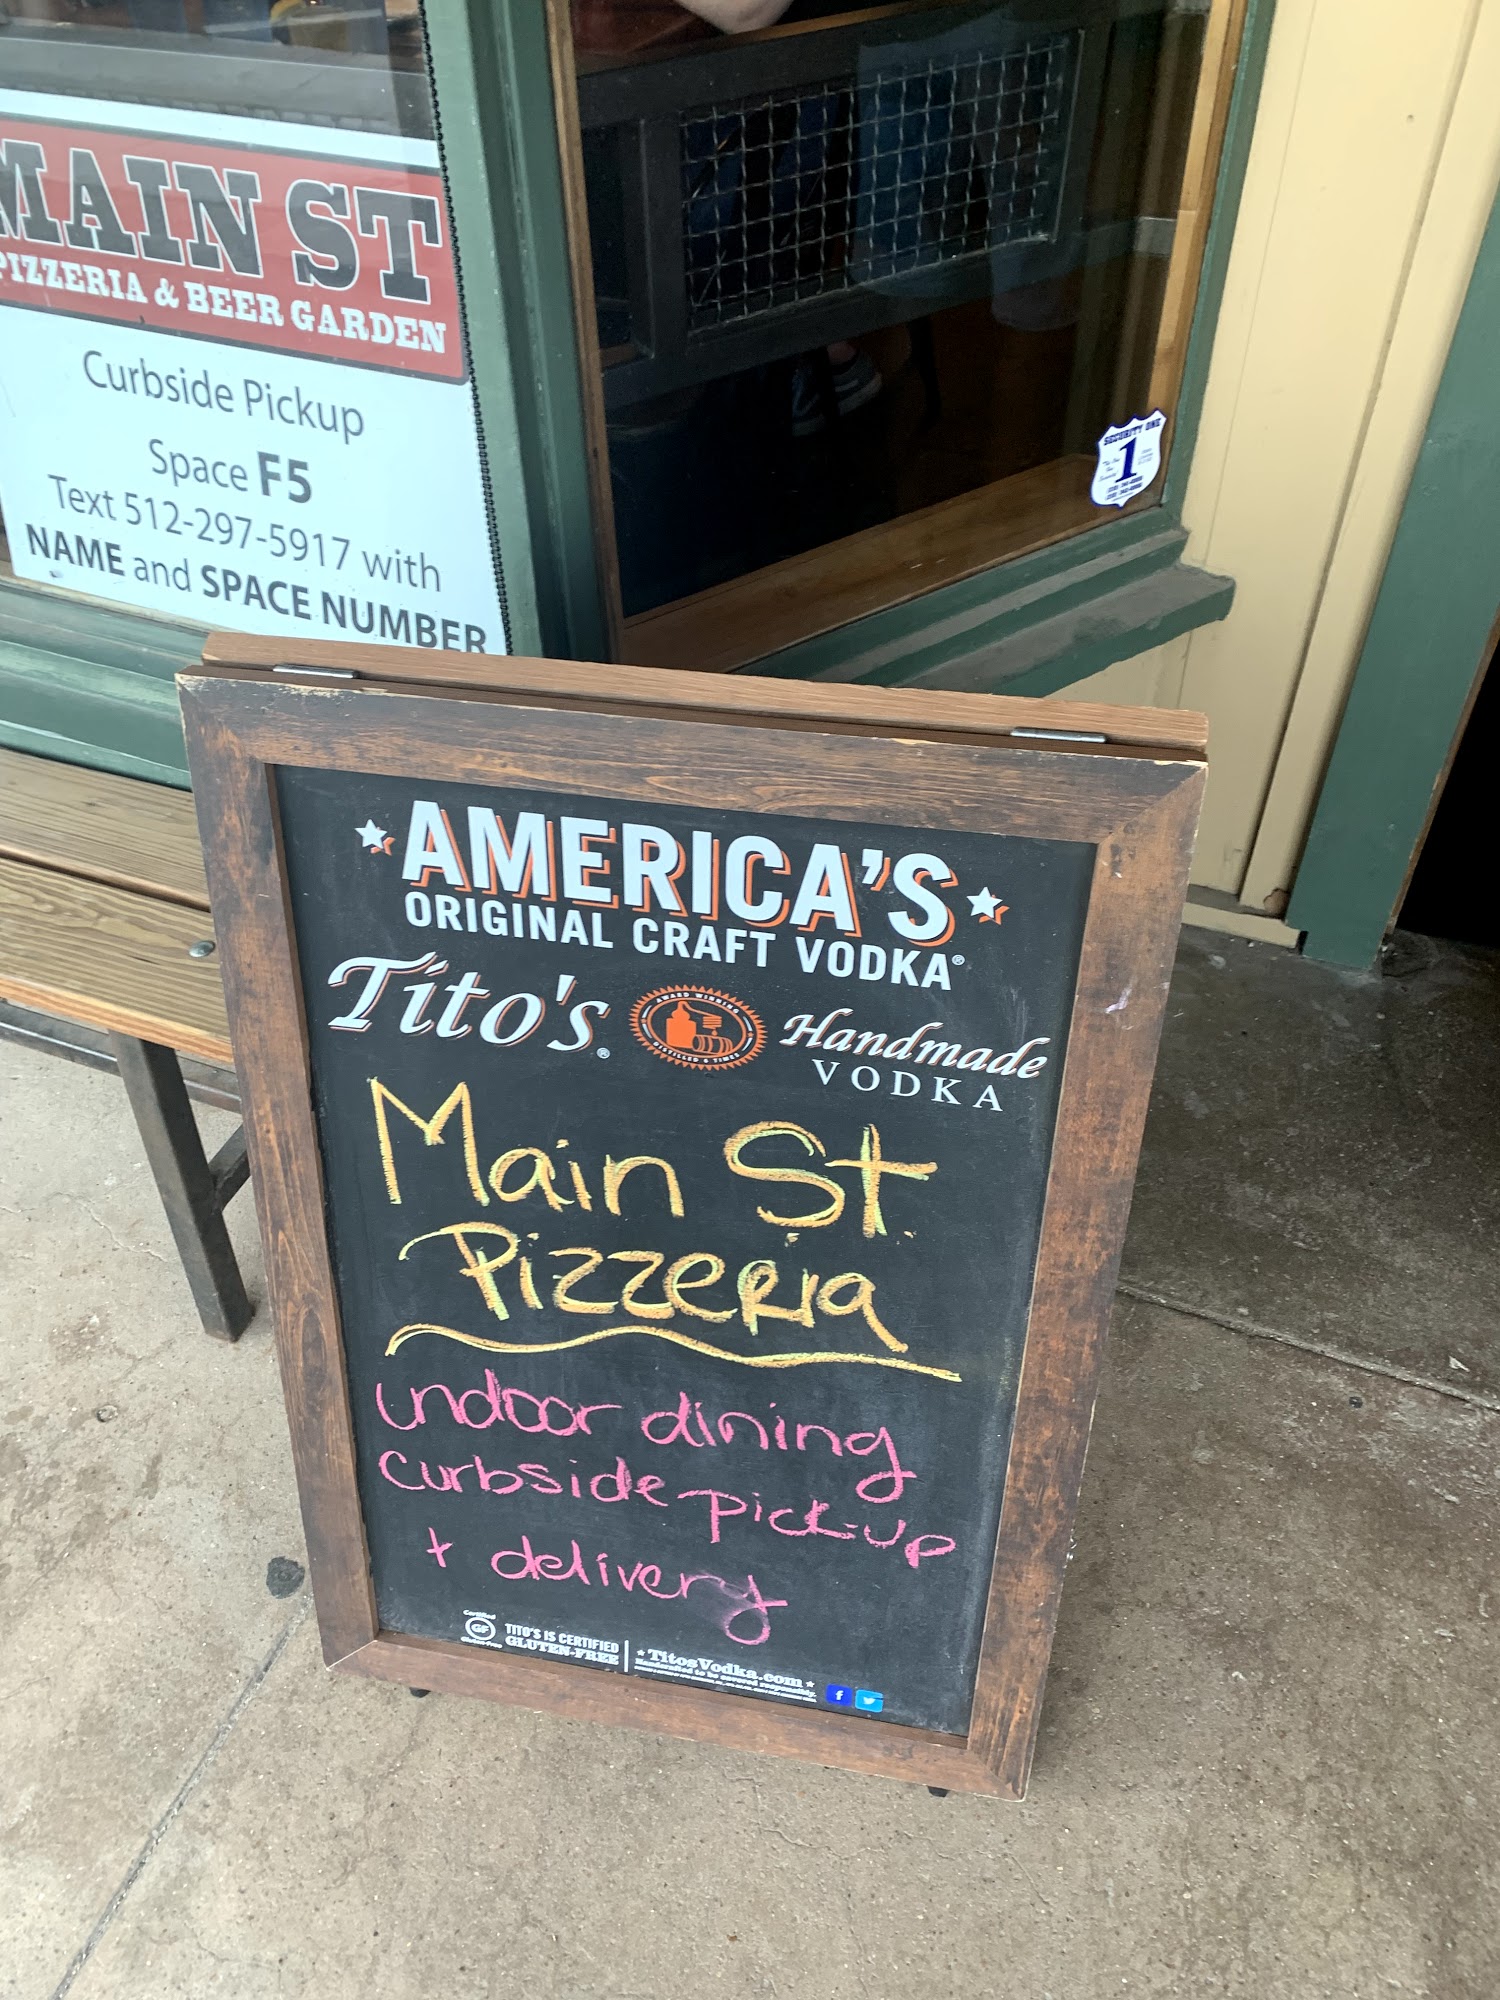 MAIN ST
PIZZERIA & BEER GARDEN
Curbside Pickup
Space F5
Text 512-297-5917 with
NAME and SPACE NUMBER
SECURITY ONE
1
AMERICA'S
ORIGINAL CRAFT VODKA®
Tito's®
AWARD WINNING
DISTILLED 6 TIMES
Handmade
VODKA
Main St.
Pizzeria
indoor dining
curbside pick-up
+ delivery
Certified
GF
Gluten-Free
TITO'S IS CERTIFIED
GLUTEN-FREE
TitosVodka.com
Handcrafted to be savored responsibly.
f